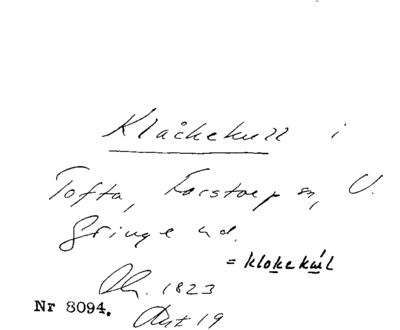 Klåckekull i
Tofta, Torstorp sn, V.
Göinge hd.
= klokekul
Ol. 1823
Nr 8094.
Avt 19